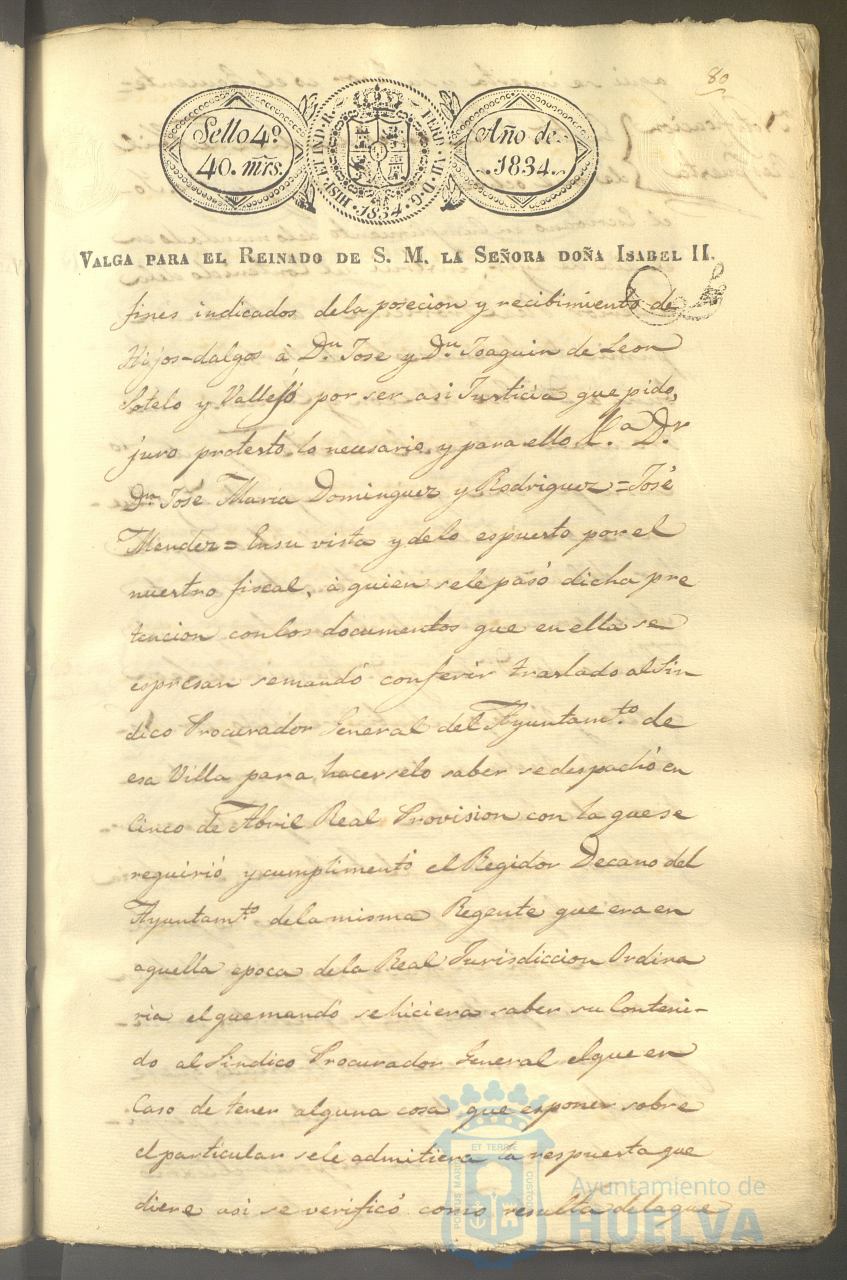 80
Sello 4º.
40. mrs.
HISP. ET IND. R. FERD. VII. D. G.
1834
Año de
1834.
VALGA PARA EL REINADO DE S. M. LA SEÑORA DOÑA ISABEL II.
fines indicados dela posecion y recibimiento de
Hijos-dalgos à Dn. Jose y Dn. Joaquin de Leon
Sotelo y Vallejo por ser asi Justicia que pido,
juro protesto lo necesario, y para ello &a Dr.
Dn. José Maria Dominguez y Rodriguez = José
Mendez = Ensu vista y delo espuesto por el
nuestro fiscal, à quien sele pasó dicha pre
tencion conlos documentos que en ella se
espresan semandó conferir traslado al Sin
dico Procurador General del Ayuntamto. de
esa Villa para hacerselo saber sedespachó en
Cinco de Abril Real Provision con la quese
requirió y cumplimentó el Regidor Decano del
Ayuntamto. dela misma Regente que era en
aquella epoca dela Real Jurisdiccion Ordina
ria el quemandó se hiciera saber su Conteni-
do al Sindico Procurador General elque en
Caso de tener alguna cosa que esponer sobre
el particular sele admitiera la respuesta que
diere asi se verificó como resulta delaque
PORTUS MARIS ET TERRÆ CUSTODIA
Ayuntamiento de
HUELVA